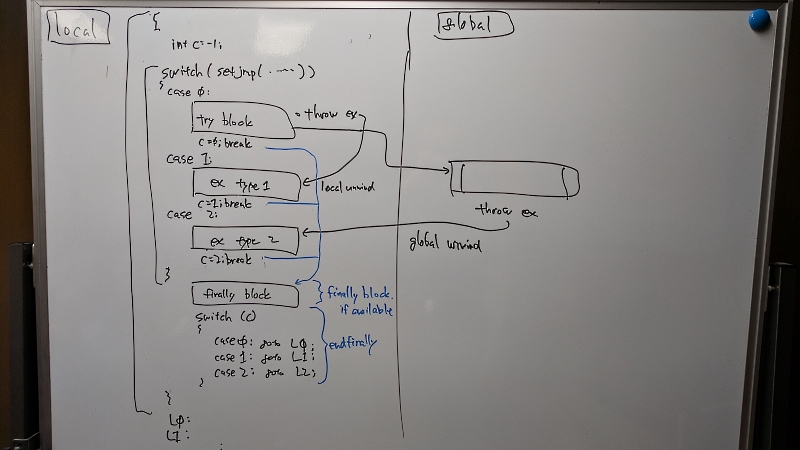 local
global
{
int c=-1;
switch(setjmp(.....))
{
case 0:
try block
throw ex
c=0;break
case 1:
ex type 1
local unwind
c=1;break
case 2:
throw ex
ex type 2
global unwind
c=2;break
}
finally block
finally block.
if available
switch (c)
{
case 0: goto L0;
endfinally
case 1: goto L1;
case 2: goto L2;
}
}
L0:
L1: